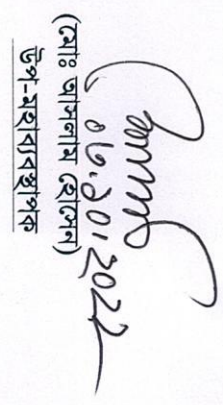 ০৬.১০.২০২২
(মোঃ আসলাম হোসেন)
উপ-মহাব্যবস্থাপক